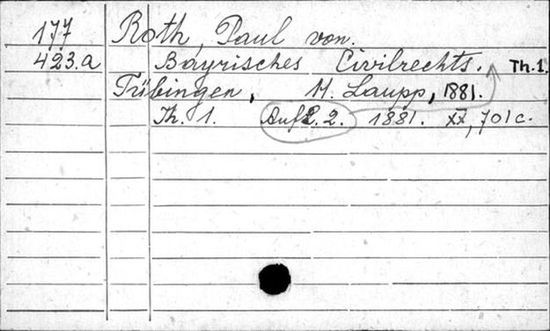 177 Roth, Paul von.
423.a Bayrisches Civilrechts. Th.1.
Tübingen, H. Laupp, 1881.
Th. 1. Aufl. 2. 1881. XX, 701 c.